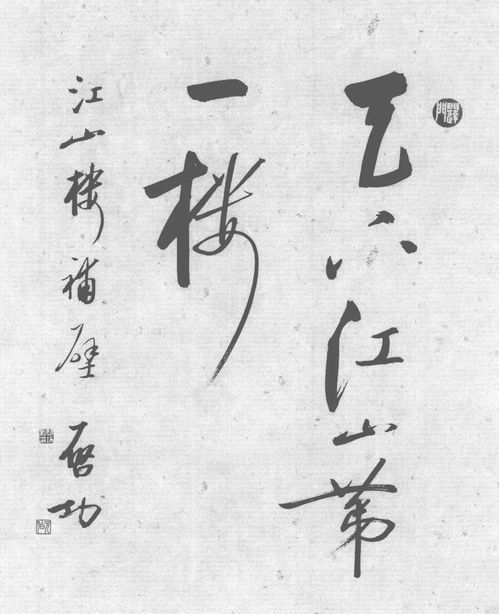 天下江山第
一楼
江山楼補壁 启功